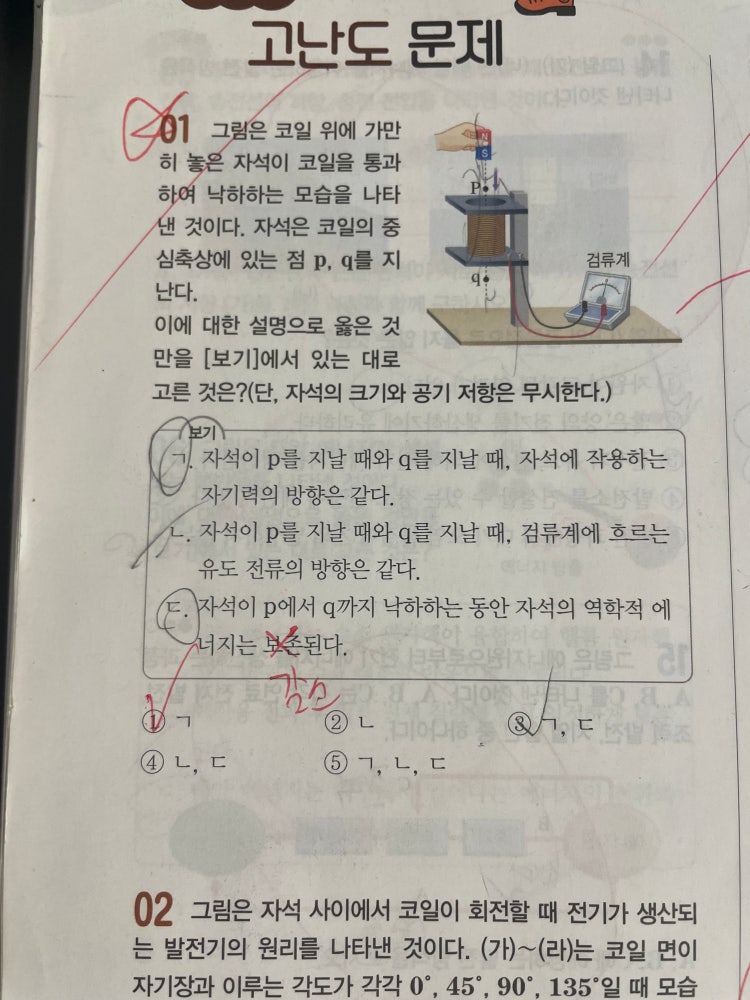 고난도 문제
01 그림은 코일 위에 가만
히 놓은 자석이 코일을 통과
하여 낙하하는 모습을 나타
낸 것이다. 자석은 코일의 중
심축상에 있는 점 p, q를 지
난다.
N
S
p
q
검류계
이에 대한 설명으로 옳은 것
만을 [보기]에서 있는 대로
고른 것은?(단, 자석의 크기와 공기 저항은 무시한다.)
보기
ㄱ. 자석이 p를 지날 때와 q를 지날 때, 자석에 작용하는
자기력의 방향은 같다.
ㄴ. 자석이 p를 지날 때와 q를 지날 때, 검류계에 흐르는
유도 전류의 방향은 같다.
ㄷ. 자석이 p에서 q까지 낙하하는 동안 자석의 역학적 에
너지는 보존된다.
감소
① ㄱ ② ㄴ ③ ㄱ, ㄷ
④ ㄴ, ㄷ ⑤ ㄱ, ㄴ, ㄷ
02 그림은 자석 사이에서 코일이 회전할 때 전기가 생산되
는 발전기의 원리를 나타낸 것이다. (가)~(라)는 코일 면이
자기장과 이루는 각도가 각각 0°, 45°, 90°, 135°일 때 모습